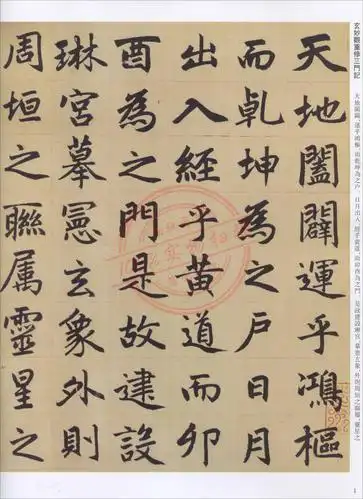 玄妙觀重修三門記
天地闔闢運乎鴻樞而乾坤為之戶日月出入經乎黃道而卯酉為之門是故建設琳宮摹憲玄象外則周垣之聯屬靈星之
天地闔闢運乎鴻樞
而乹坤為之戶日月
出入經乎黃道而卯
酉為之門是故建設
琳宮摹憲玄象外則
周垣之聮属靈星之